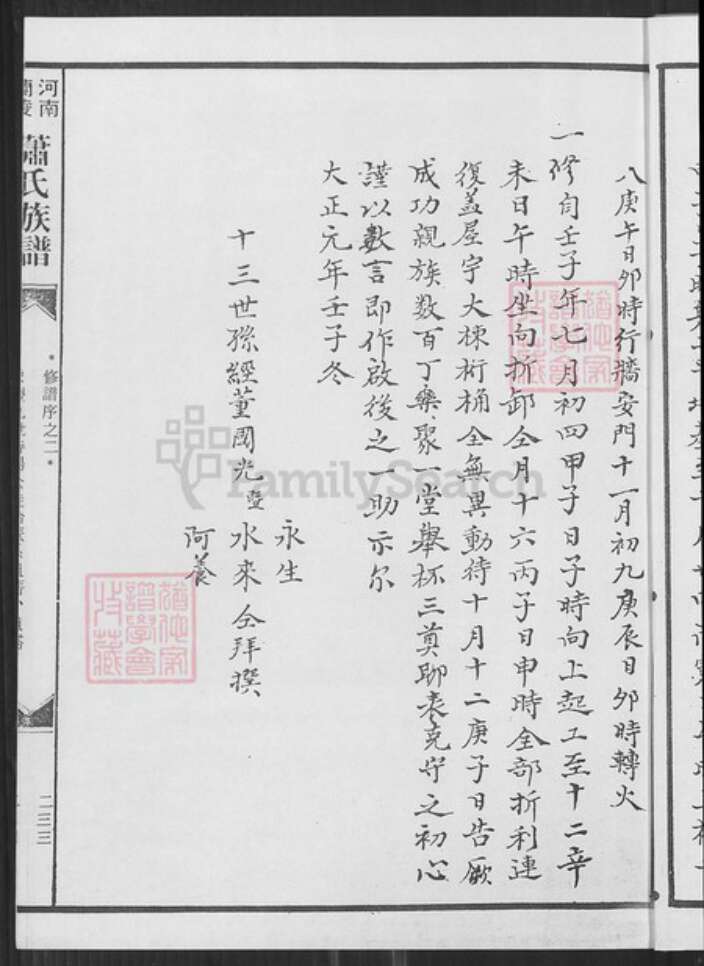 八庚午日卯時行牆安門十一月初九庚辰日卯時轉火
一修自壬子年七月初四甲子日子時向上起工至十二辛
未日午時坐向折卸仝月十六丙子日申時全部折利連
復蓋屋宇大棟桁桷全無異動待十月十二庚子日告厥
成功親族數百丁樂聚一堂舉杯三奠聊表克守之初心
謹以數言即作啟後之一助示尔
大正元年壬子冬
十三世孫經董國光暨
永生
水來
阿養
仝拜撰
河南
蘭陵
蕭氏族譜
•修譜序之二•
二三三
FamilySearch